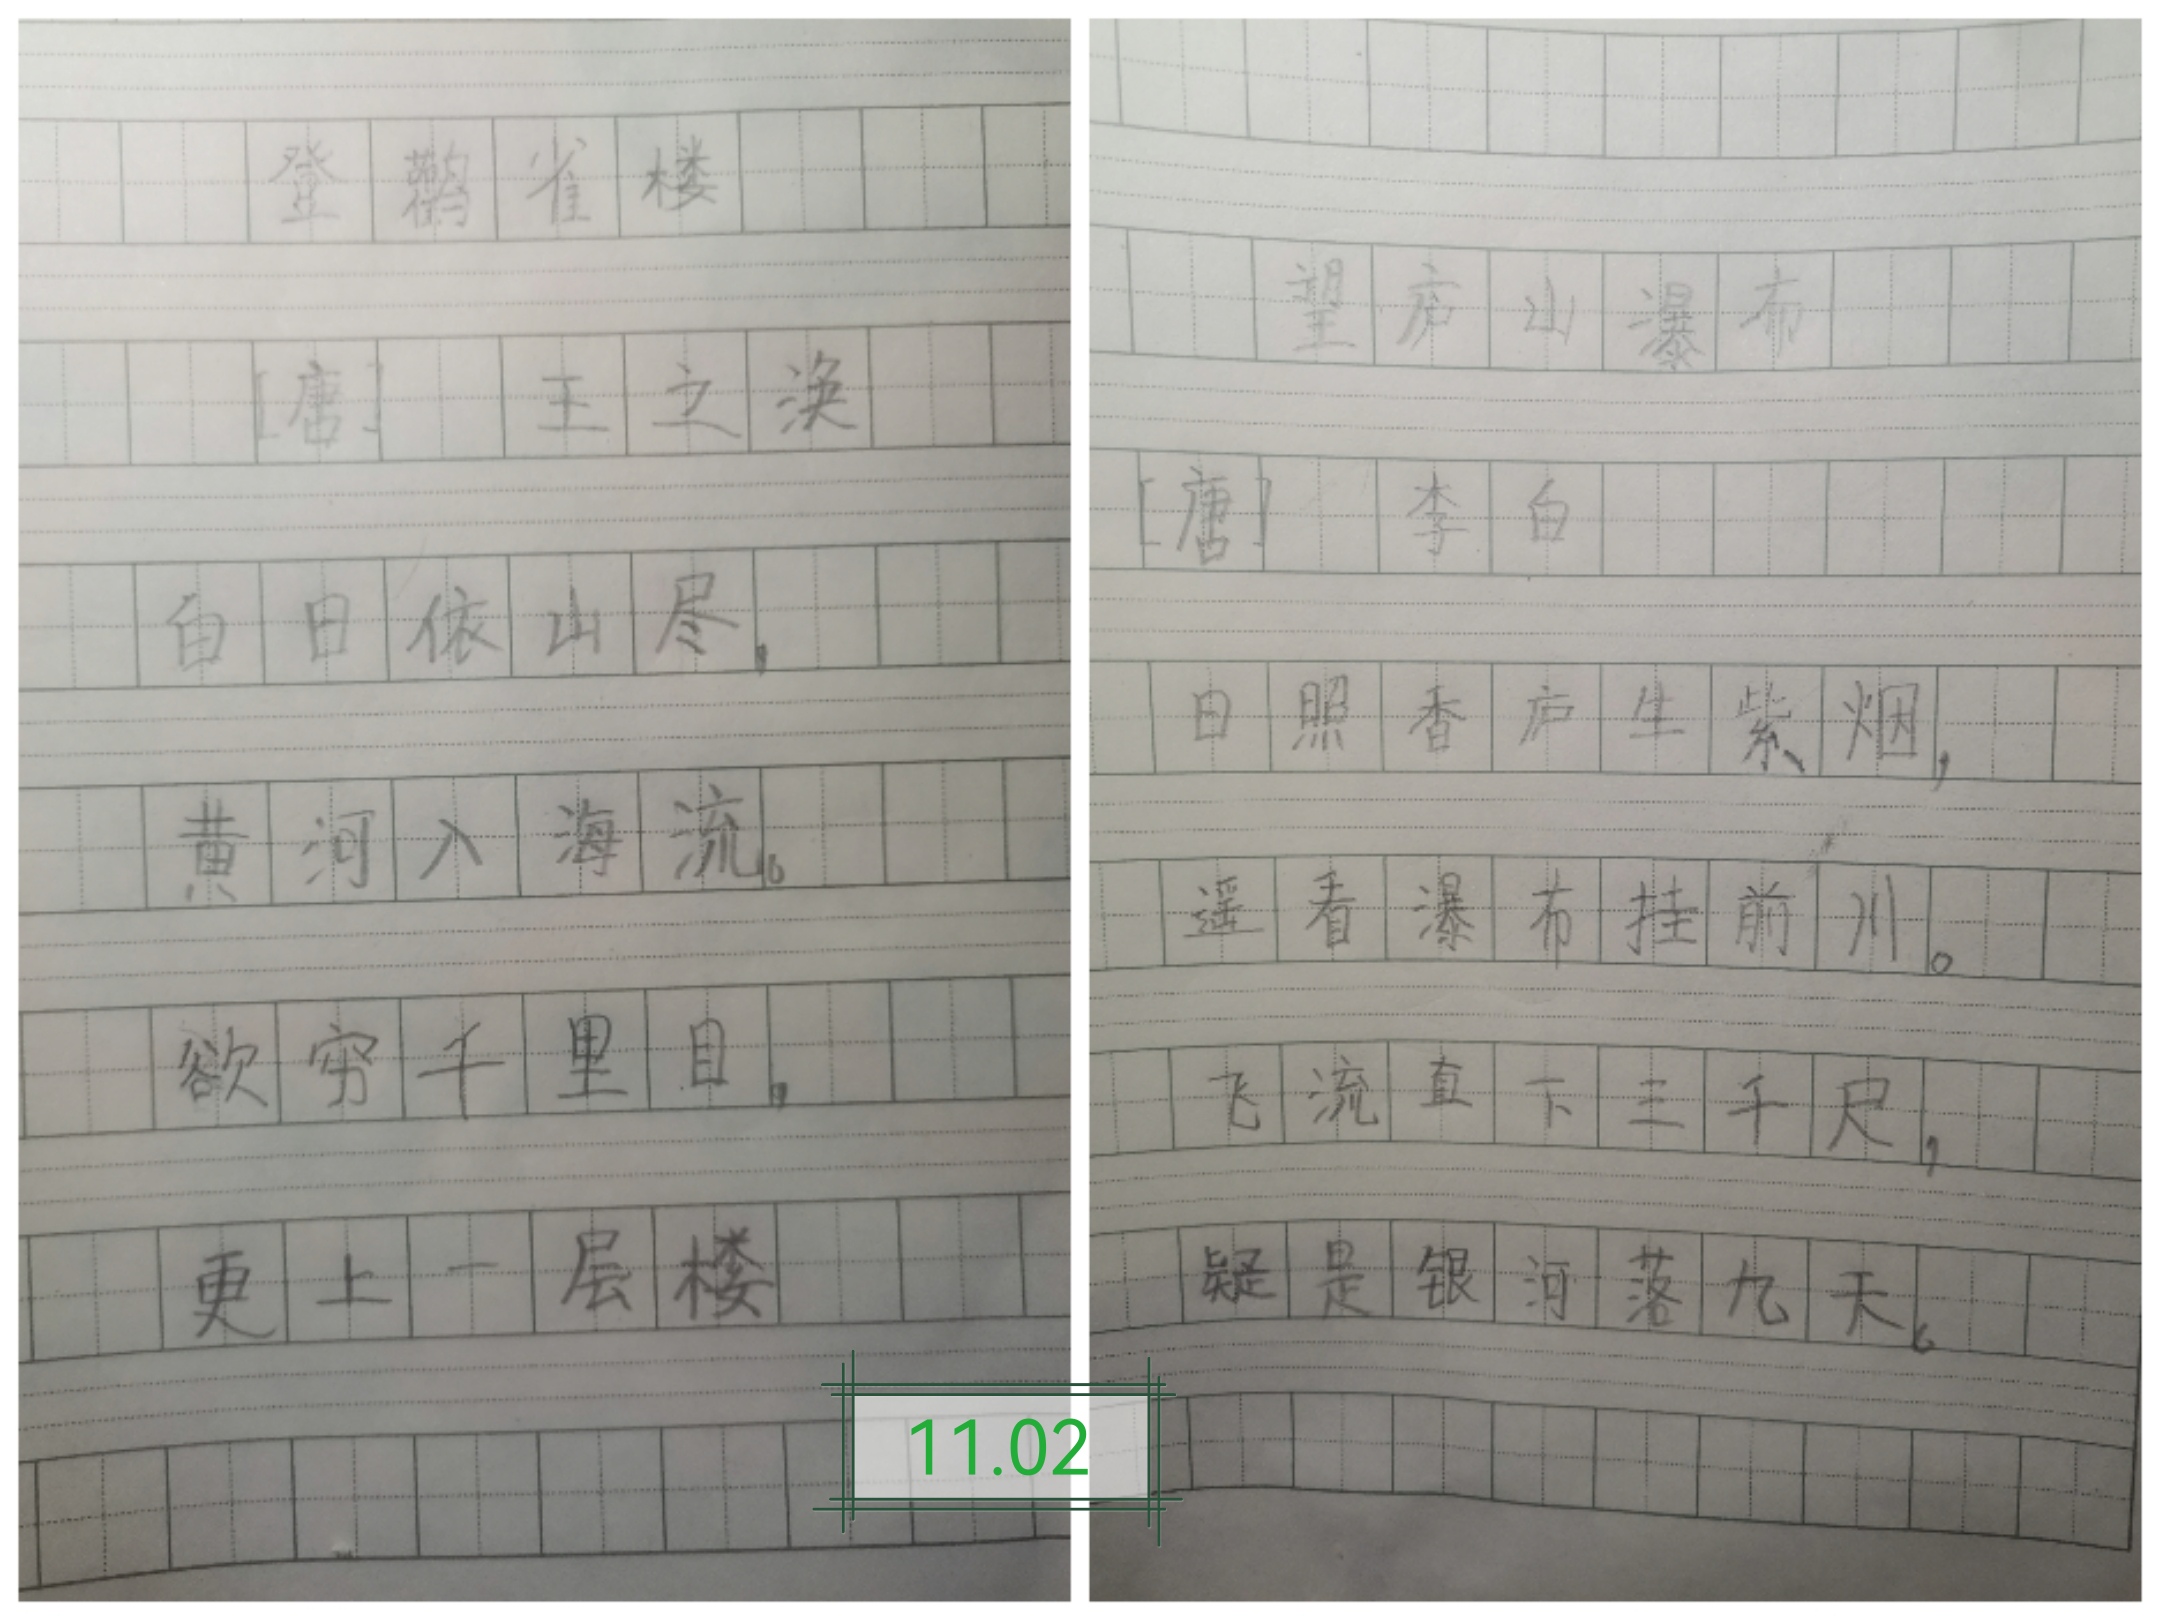 登鹳雀楼
[唐] 王之涣
白日依山尽,
黄河入海流。
欲穷千里目,
更上一层楼
望庐山瀑布
[唐] 李白
日照香庐生紫烟,
遥看瀑布挂前川。
飞流直下三千尺,
疑是银河落九天。
11.02